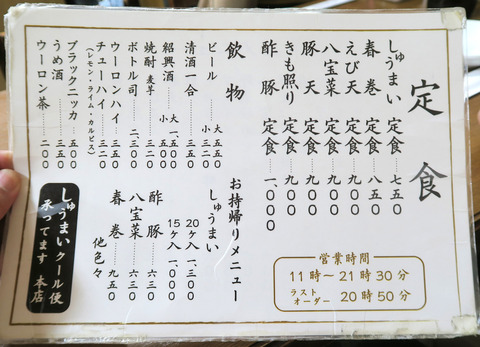 定食
しゅうまい定食……七五〇
春巻定食……八五〇
えび天定食……九〇〇
八宝菜定食……九〇〇
豚天定食……九〇〇
きも照り定食……九〇〇
酢豚定食……一、〇〇〇
営業時間
11時〜21時30分
ラストオーダー 20時50分
飲物
ビール……大 五五〇
小 三二〇
清酒一合……三五〇
紹興酒……大 一、五〇〇
小 五〇〇
焼酎 麦 芋……三五〇
ボトル司……二、三〇〇
ウーロンハイ……三五〇
チューハイ……三二〇
(レモン・ライム・カルピス)
ブラックニッカ……三五〇
うめ酒……三五〇
ウーロン茶……二〇〇
お持帰りメニュー
しゅうまい
20ヶ入 一、三〇〇
15ヶ入 一、〇〇〇
酢豚……六三〇
八宝菜……六三〇
春巻……九五〇
他色々
しゅうまいクール便
承ってます 本店